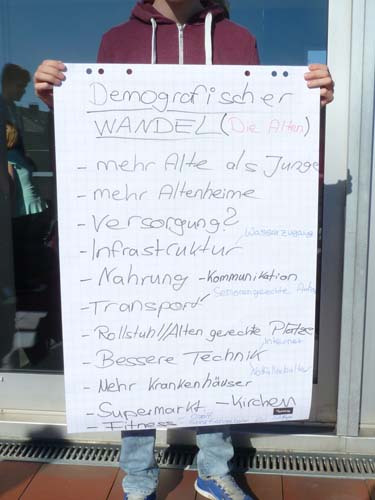 Demografischer
WANDEL (Die Alten)
- mehr Alte als Junge
- mehr Altenheime
- Versorgung?
Wasserzugang
- Infrastruktur
- Nahrung - Kommunikation
Seniorengerechte Autos
- Transport
- Rollstuhl//Alten gerechte Plätze
Internet
- Bessere Technik
Notfallknöpfe
- Mehr Krankenhäuser
- Supermarkt - Kirchen
- Fitness